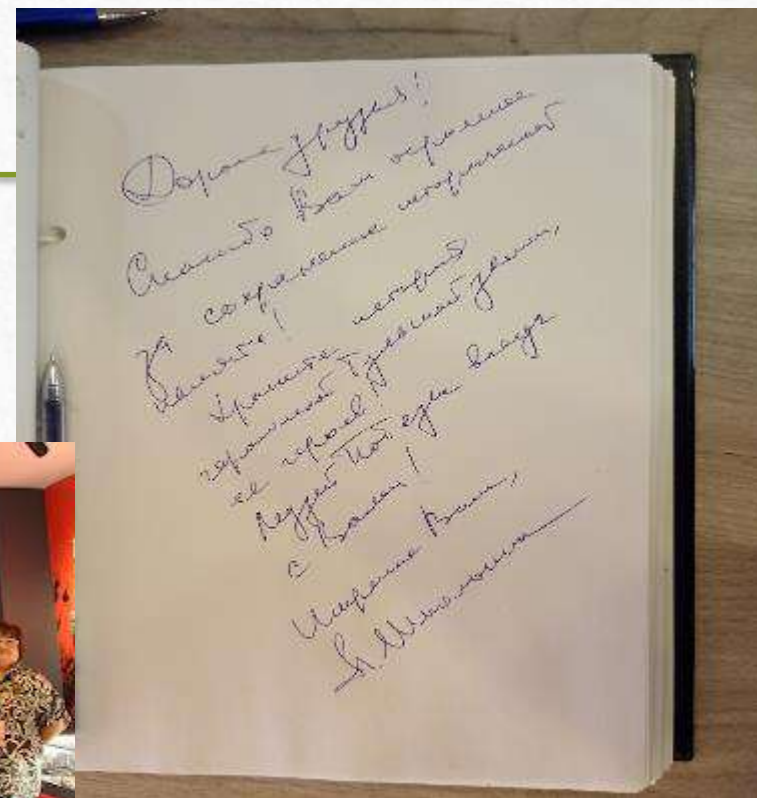 Дорогие друзья!
Спасибо Вам огромное
за сохранение исторической
памяти!
Храните историю
героической Тульской земли,
ее героев!
Музей Победы всегда
с Вами!
Искренне Ваш,